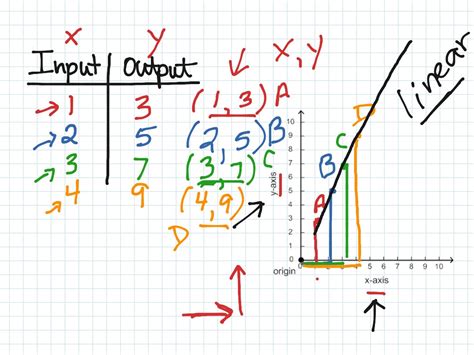 x y x, y
Input Output
1 3 (1,3) A
2 5 (2,5) B
3 7 (3,7) C
4 9 (4,9)
D
linear
10
9
8
7
6
5
4
3
2
1
y-axis
A B C D
origin
5 6 7 8 9 10
x-axis